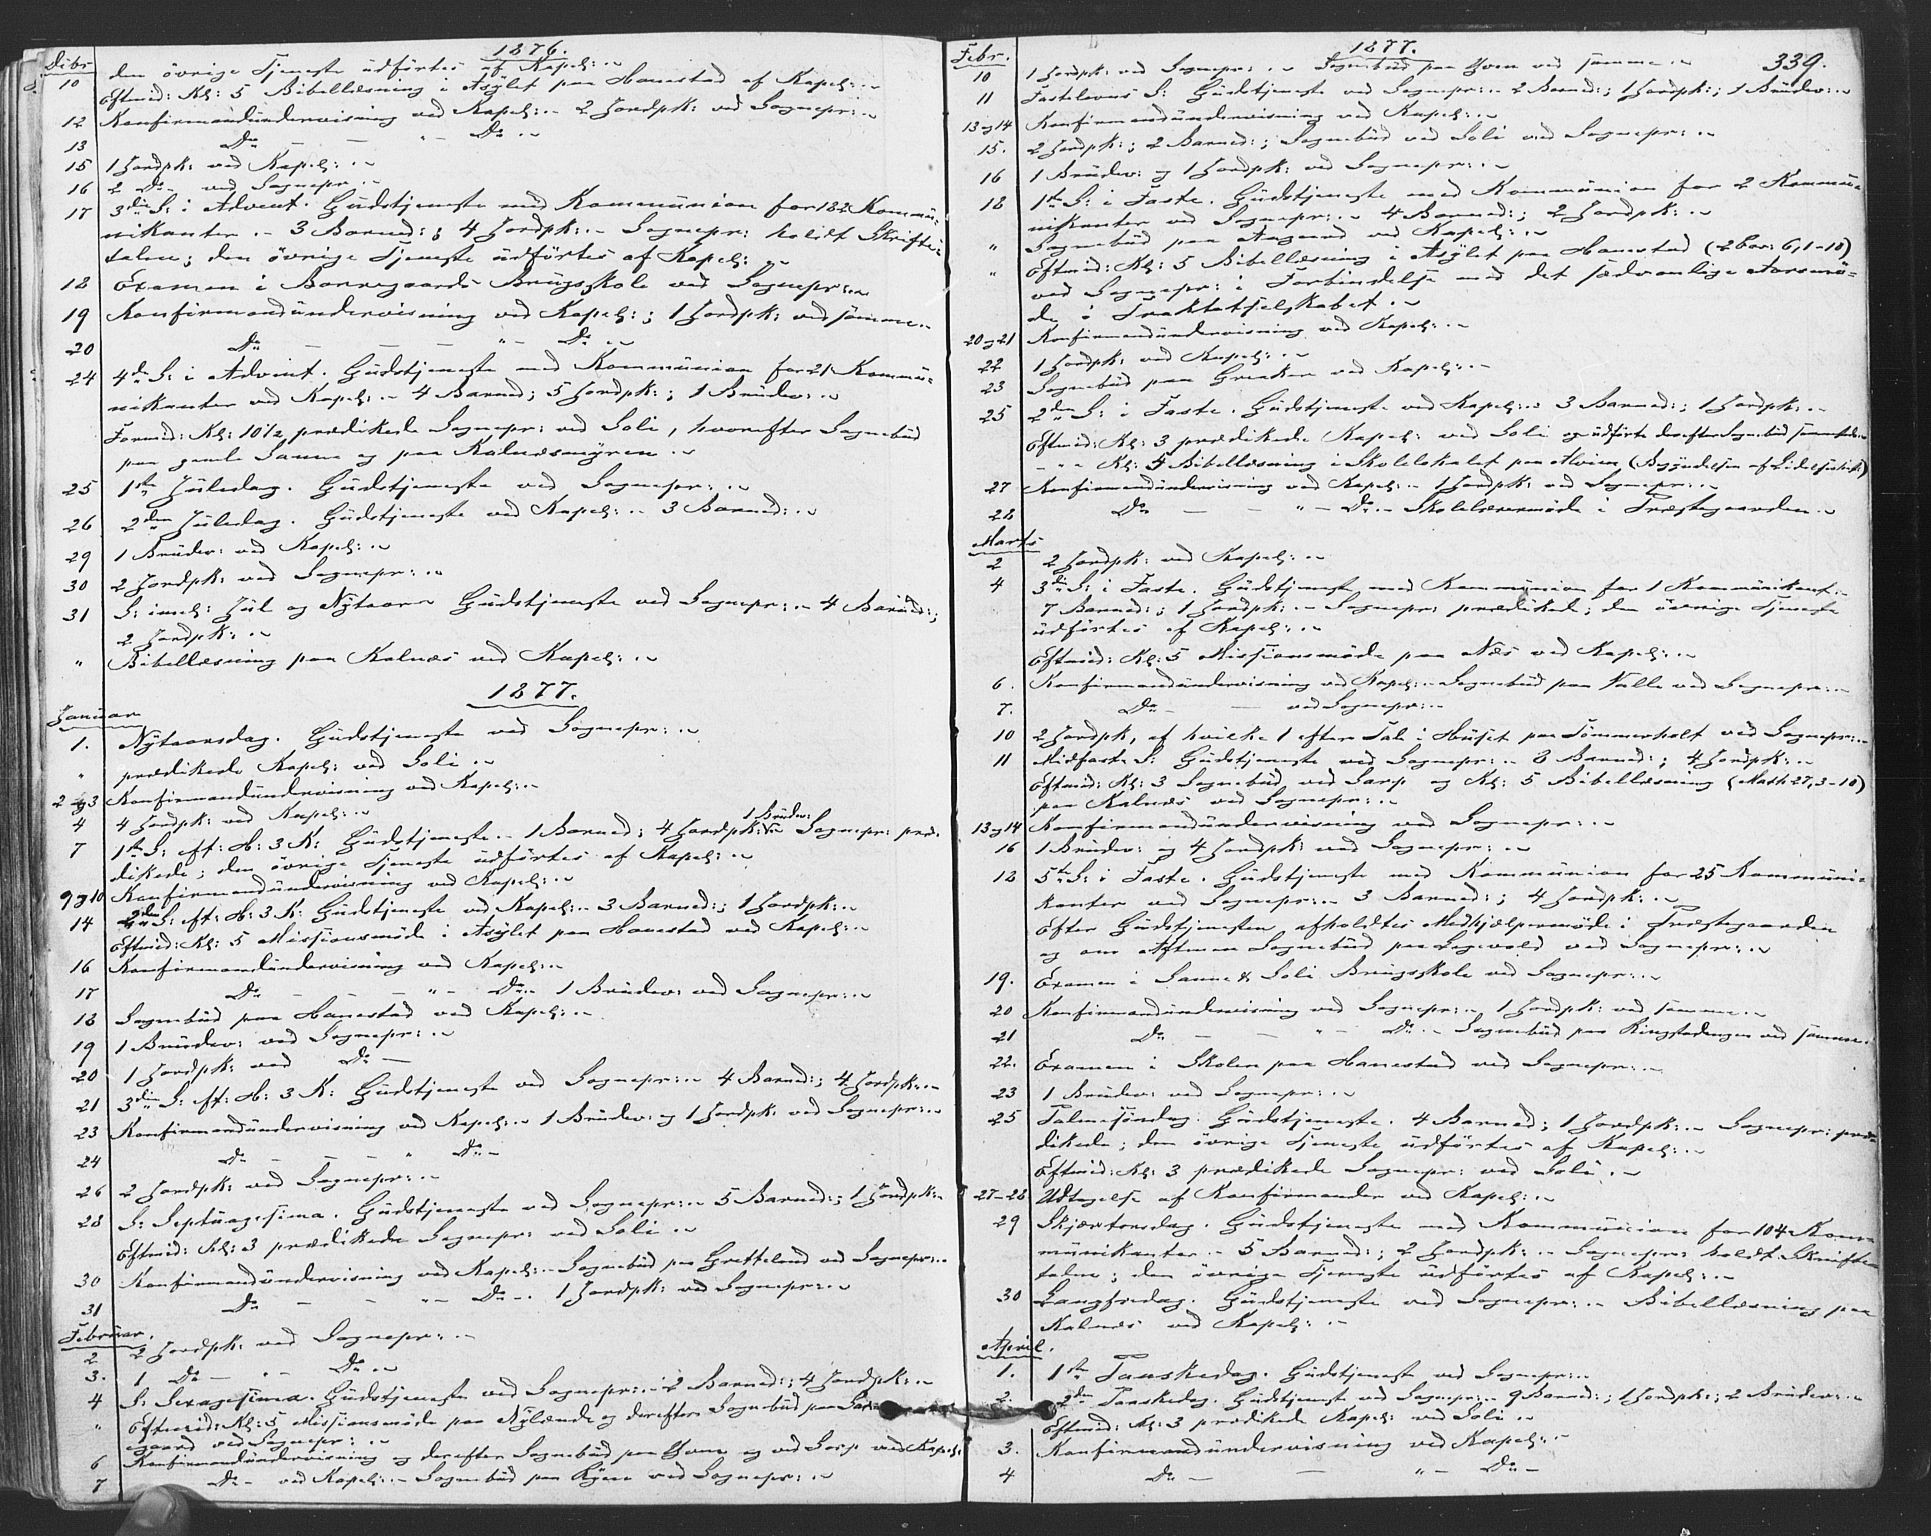 1876.
Dcbr
10 den övrige Tjeneste udförtes af Kapel: –
Eftmid: Kl: 5 Bibellæsning i Asylet paa Hanestad af Kapel: –
12 Konfirmandundervisning ved Kapel: – 2 Jordpk: ved Sognepr: –
13 Do – – " – Do –
15 1 Jordpk: ved Kapel: –
16 2 Do – ved Sognepr: –
17 3die S: i Advent. Gudstjeneste med Kommunion for 182 Kommu-
nikanter. – 3 Barned:; 4 Jordpk: – Sognepr: holdt Skrifte-
talen; den övrige Tjeneste udförtes af Kapel: –
18 Examen i Borregaards Brugsskole ved Sognepr: –
19 Konfirmandundervisning ved Kapel:; 1 Jordpk: ved samme. –
20 Do – – – " – Do –
24 4de S: i Advent. Gudstjeneste med Kommunion for 21 Kommu-
nikanter ved Kapel: – 4 Barned; 5 Jordpk:; 1 Brudev: –
Formid: Kl: 10½ prædikede Sognepr: ved Soli, hvorefter Sognebud
paa gamle Sanne og paa Kalnæsmyren –
25 1ste Juledag. Gudstjeneste ved Sognepr: –
26 2den Juledag. Gudstjeneste ved Kapel: – 3 Barned: –
29 1 Brudev: ved Kapel: –
30 2 Jordpk: ved Sognepr: –
31 S: imel: Jul og Nytaar Gudstjeneste ved Sognepr: – 4 Barned:;
2 Jordpk: –
" Bibellæsning paa Kalnæs ved Kapel: –
1877.
Januar
1. Nytaarsdag. Gudstjeneste ved Sognepr: –
" prædikede Kapel: ved Soli –
2 og 3 Konfirmandundervisning ved Kapel: –
4 4 Jordpk: ved Kapel: –
1 Brudev:
7 1ste S: eft: H: 3 K: Gudstjeneste. – 1 Barned; 4 Jordpk: Sognepr: præ-
dikede; den övrige Tjeneste udförtes af Kapel: –
9 og 10 Konfirmandundervisning ved Kapel: –
14 2den S: eft: H: 3 K: Gudstjeneste ved Kapel: – 3 Barned:; 1 Jordpk: –
Eftmid: Kl: 5 Missionsmöde i Asylet paa Hanestad ved Kapel: –
16 Konfirmandundervisning ved Kapel: –
17 Do – – – " – Do – 1 Brudev: ved Sognepr: –
18 Sognebud paa Hanestad ved Kapel: –
19 1 Brudev: ved Sognepr: –
20 1 Jordpk: ved Do –
21 3die S: eft: H: 3 K: Gudstjeneste ved Sognepr: – 4 Barned:; 4 Jordpk: –
23 Konfirmandundervisning ved Kapel: – 1 Brudev: og 1 Jordpk: ved Sognepr: –
24 Do – – – " Do –
26 2 Jordpk: ved Sognepr: –
28 S: Septuagesima. Gudstjeneste ved Sognepr: – 5 Barned:; 1 Jordpk: –
Eftmid: Kl: 3 prædikede Sognepr: ved Soli –
30 Konfirmandundervisning ved Kapel: – Sognebud paa Gretteland ved Sognepr: –
31 Do – – " – Do – 1 Jordpk: ved Sognepr: –
Februar.
2 2 Jordpk: ved Sognepr: –
3. 1 Do – " – Do –
4 S: Sexagesima. Gudstjeneste ved Sognepr: – 2 Barned:; 4 Jordpk: –
" Eftermid: Kl: 5 Missionsmöde paa Nylænde og derefter Sognebud paa
gaard ved Sognepr: –
6 Konfirmandundervisning og derefter Sognebud paa Hvam og ved Sarp ved Kapel:
7 Do – ved Kapel: – Sognebud paa ved Sognepr: –
1877. 339.
Febr.
10 1 Jordpk: ved Sognepr: – Sognebud paa Hvam ved samme –
11 Fastelavns S: Gudstjeneste ved Sognepr: – 2 Barned:; 1 Jordpk:; 1 Brudev: –
13 og 14 Konfirmandundervisning ved Kapel: –
15. 2 Jordpk:; 2 Barned:; Sognebud ved Soli ved Sognepr: –
16 1 Brudev: og 1 Jordpk: ved Sognepr: –
18 1ste S: i Faste. Gudstjeneste med Kommunion for 2 Kommu-
nikanter ved Sognepr: – 4 Barned:; 2 Jordpk: –
" Sognebud paa Aagaard ved Kapel: –
" Eftmid: Kl: 5 Bibellæsning i Asylet paa Hanestad (2 Cor: 6, 1-10)
ved Sognepr: i Forbindelse med det sædvanlige Aarsmö-
de i Traktatselskabet –
20 og 21 Konfirmandundervisning ved Kapel: –
22 1 Jordpk: ved Kapel: –
23 Sognebud paa Greaker ved Kapel: –
25 2den S: i Faste. Gudstjeneste ved Kapel: – 3 Barned:; 1 Jordpk: –
Eftmid: Kl: 3 prædikede Kapel: ved Soli og udförte derefter Sognebud sammesteds –
– " – Kl: 5 Bibellæsning i Skolelokalet paa Alvim (Begyndelsen af Lidelseshist:)
27 Konfirmandundervisning ved Kapel: – 1 Jordpk: ved Sognepr: –
28 Do – – " – Do – Skolelærermöde i Præstegaarden –
Marts
2 2 Jordpk: ved Kapel: –
4 3die S: i Faste. Gudstjeneste med Kommunion for 1 Kommunikant. –
7 Barned:; 1 Jordpk: – Sognepr: prædikede; den övrige Tjeneste
udförtes af Kapel: –
Eftmid: Kl: 5 Missionsmöde paa Næs ved Kapel: –
6. Konfirmandundervisning ved Kapel: – Sognebud paa Valle ved Sognepr: –
7. Do – – ved Sognepr: –
10 2 Jordpk, af hvilke 1 efter Tale i Huset paa Tömmerholt ved Sognepr: –
11 Midfaste S: Gudstjeneste ved Sognepr: – 8 Barned:; 4 Jordpk: –
Eftmid: Kl: 3 Sognebud ved Sarp og Kl: 5 Bibellæsning (Math 27, 3-10)
paa Kalnæs ved Sognepr: –
13 og 14 Konfirmandundervisning ved Sognepr: –
16 1 Brudev: og 4 Jordpk: ved Sognepr: –
18 5te S: i Faste. Gudstjeneste med Kommunion for 25 Kommuni-
kanter ved Sognepr: – 3 Barned:; 4 Jordpk: –
Efter Gudstjenesten afholdtes Medhjælpermöde i Præstegaarden
og om Aftenen Sognebud paa ved Sognepr: –
19. Examen i Sanne & Soli Brugsskole ved Sognepr: –
20 Konfirmandundervisning ved Sognepr: – 1 Jordpk: ved samme –
21 Do – – " – Do – Sognebud paa ved samme.
22. Examen i Skolen paa Hanestad ved Sognepr: –
23 1 Brudev: ved Sognepr: –
25 Palmesöndag. Gudstjeneste. 4 Barned; 1 Jordpk: – Sognepr: præ-
dikede; den övrige Tjeneste udförtes af Kapel: –
Eftmid: Kl: 3 prædikede Sognepr: ved Soli –
27–28 Udtagelse af Konfirmander ved Kapel: –
29 Skjærtorsdag. Gudstjeneste med Kommunion for 104 Kom-
munikanter – 5 Barned:; 2 Jordpk: – Sognepr: holdt Skrifte-
talen; den övrige Tjeneste udförtes af Kapel: –
30 Langfredag. Gudstjeneste ved Sognepr: – Bibellæsning paa
Kalnæs ved Kapel: –
April.
1. 1ste Paaskedag. Gudstjeneste ved Sognepr: –
2. 2den Paaskedag. Gudstjeneste ved Sognepr: – 9 Barned:; 1 Jordpk:; 2 Brudev: –
Eftmid: Kl: 3 prædikede Kapel: ved Soli –
3. Konfirmandundervisning ved Kapel: –
4 Do – – " – Do –